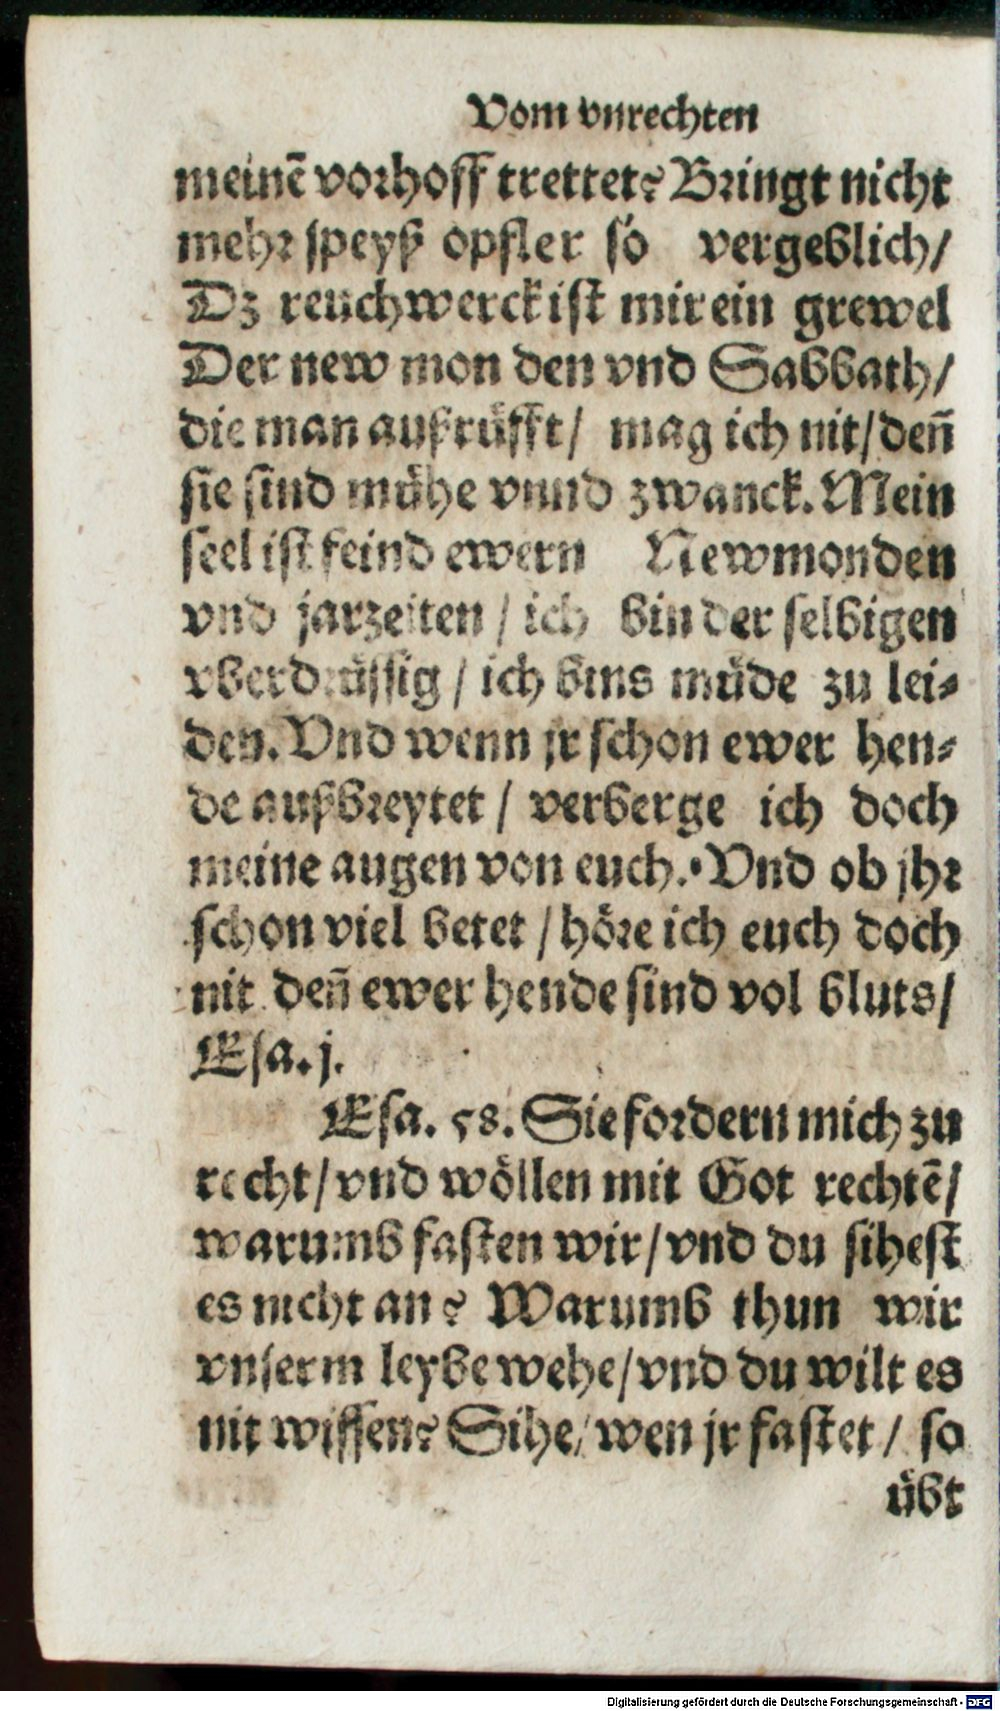 Vom vnrechten
meinē vorhoff trettet? Bringt nicht
mehr speyß opffer so vergeblich/
Dz reuchwerck ist mir ein grewel
Der new mon den vnd Sabbath/
die man außrüfft/ mag ich nit/ deñ
sie sind mühe vnnd zwanck. Mein
seel ist feind ewern Newmonden
vnd jarzeiten / ich bin der selbigen
vberdrüssig / ich bins müde zu lei⸗
den. Vnd wenn jr schon ewer hen⸗
de außbreytet / verberge ich doch
meine augen von euch. Vnd ob jhr
schon viel betet / höre ich euch doch
nit deñ ewer hende sind vol bluts/
Esa. j.
Esa. 58. Sie fordern mich zu
recht/ vnd wöllen mit Got rechtē/
warumb fasten wir/ vnd du sihest
es nicht an? Warumb thun wir
vnserm leybe wehe/ vnd du wilt es
nit wissen? Sihe/ wen jr fastet / so
übt
Digitalisierung gefördert durch die Deutsche Forschungsgemeinschaft - DFG